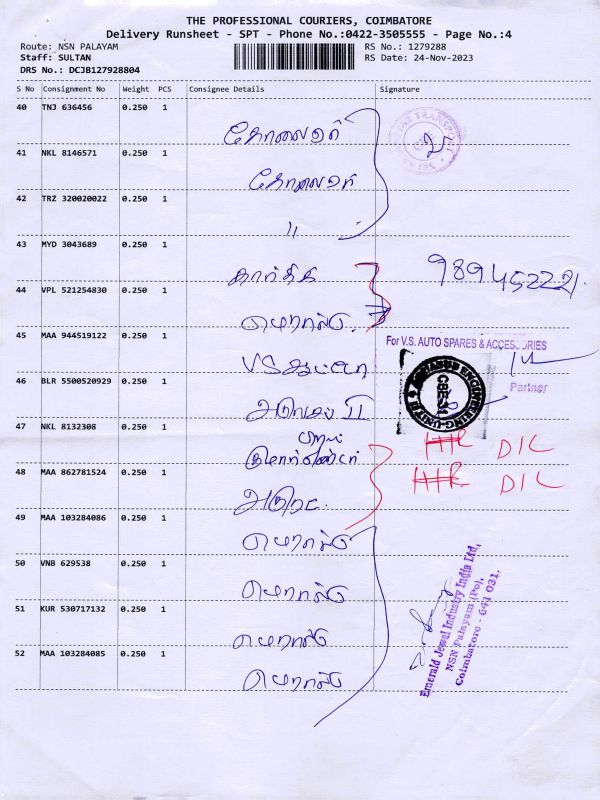 THE PROFESSIONAL COURIERS, COIMBATORE
Delivery Runsheet - SPT - Phone No.:0422-3505555 - Page No.:4
Route: NSN PALAYAM
RS No.: 1279288
Staff: SULTAN
RS Date: 24-Nov-2023
DRS No.: DCJB127928804
S No Consignment No Weight PCS Consignee Details Signature
40 TNJ 636456 0.250 1
41 NKL 8146571 0.250 1
42 TRZ 320020022 0.250 1
"
43 MYD 3043689 0.250 1
கார்த்தி
44 VPL 521254830 0.250 1
எமரால்டு
45 MAA 944519122 0.250 1
For V.S. AUTO SPARES & ACCESSORIES
VS ஆட்டோ
Partner
46 BLR 5500520929 0.250 1
47 NKL 8132308 0.250 1
D/L
48 MAA 862781524 0.250 1
D/L
49 MAA 103284086 0.250 1
எமரால்டு
50 VNB 629538 0.250 1
எமரால்டு
51 KUR 530717132 0.250 1
எமரால்டு
52 MAA 103284085 0.250 1
எமரால்டு
Emerald Jewel Industry India Ltd,
NSN Palayam (Po),
Coimbatore - 641 031.